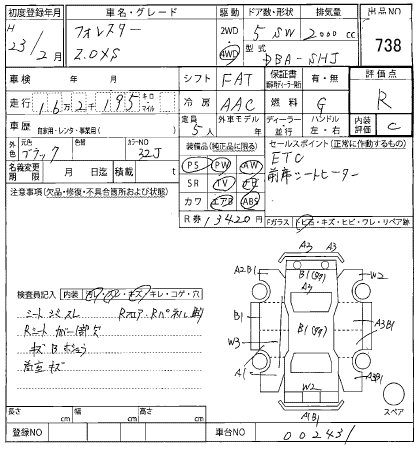 初度登録年月 車名・グレード 駆動 ドア数・形状 排気量 出品NO
H 23/2月 フォレスター 2WD 5 SW 2000 cc 738
2.0XS 4WD 型式 DBA-SHJ
車検 年 月 シフト FAT 保証書 有・無 評価点
走行 16万2千195 キロ マイル 冷房 AAC 燃料 G R
車歴 自家用・レンタ・事業用( ) 定員 5人 外車モデル ディーラー 並行 ハンドル 左・右 内装評価 C
外色 ブラック 色替 カラーNO 32J 装備品(純正品に限る) セールスポイント(正常に作動するもの)
名義変更期限 月 日迄 積載 t PS PW AW ETC
注意事項(欠品・修復・不具合箇所および状態) SR TV ナビ 前席シートヒーター
カワ エアB ABS
R券 13420円 Fガラス トビ石・キズ・ヒビ・ワレ・リペア跡
A3 A3
A2B1 B1 W2
検査員記入 内装 汚レ・スレ・キズ・キレ・コゲ・穴
シート スレ Rフロア・Rパネル
Rシート カバー欠 B1 B1 A3B1
キズ B W3
キズ A1 A3B1
W2
A1B1 スペア
長さ cm 幅 cm 高さ cm
登録NO 車台NO 002431